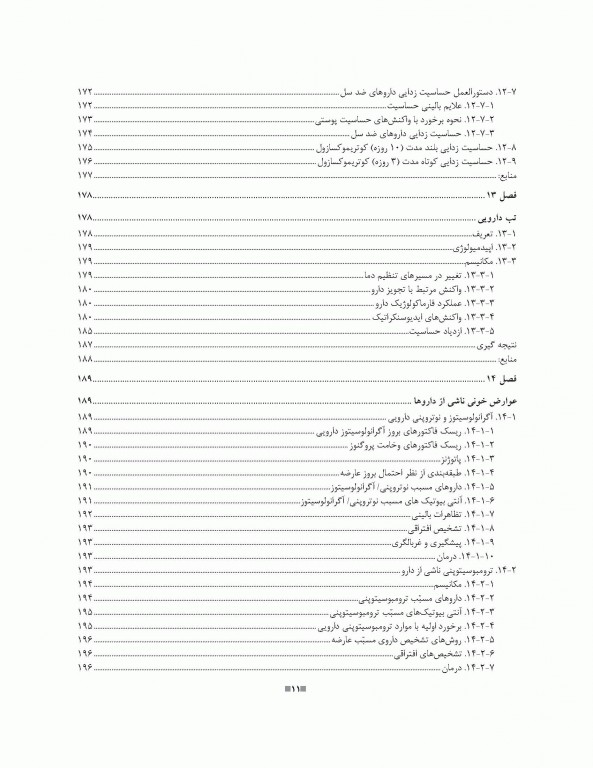 ۱۲-۷. دستورالعمل حساسیت زدایی داروهای ضد سل ۱۷۲
۱۲-۷-۱. علایم بالینی حساسیت ۱۷۲
۱۲-۷-۲. نحوه برخورد با واکنش‌های حساسیت پوستی ۱۷۳
۱۲-۷-۳. حساسیت زدایی داروهای ضد سل ۱۷۴
۱۲-۸. حساسیت زدایی بلند مدت (۱۰ روزه) کوتریموکسازول ۱۷۵
۱۲-۹. حساسیت زدایی کوتاه مدت (۳ روزه) کوتریموکسازول ۱۷۶
منابع: ۱۷۷
فصل ۱۳ ۱۷۸
تب دارویی ۱۷۸
۱۳-۱. تعریف ۱۷۸
۱۳-۲. اپیدمیولوژی ۱۷۹
۱۳-۳. مکانیسم ۱۷۹
۱۳-۳-۱. تغییر در مسیرهای تنظیم دما ۱۷۹
۱۳-۳-۲. واکنش مرتبط با تجویز دارو ۱۸۰
۱۳-۳-۳. عملکرد فارماکولوژیک دارو ۱۸۰
۱۳-۳-۴. واکنش‌های ایدیوسنکراتیک ۱۸۰
۱۳-۳-۵. ازدیاد حساسیت ۱۸۵
نتیجه گیری ۱۸۷
منابع: ۱۸۸
فصل ۱۴ ۱۸۹
عوارض خونی ناشی از داروها ۱۸۹
۱۴-۱. آگرانولوسیتوز و نوتروپنی دارویی ۱۸۹
۱۴-۱-۱. ریسک فاکتورهای بروز آگرانولوسیتوز دارویی ۱۸۹
۱۴-۱-۲. ریسک فاکتورهای وخامت پروگنوز ۱۹۰
۱۴-۱-۳. پاتوژنز ۱۹۰
۱۴-۱-۴. طبقه‌بندی از نظر احتمال بروز عارضه ۱۹۰
۱۴-۱-۵. داروهای مسبب نوتروپنی/ آگرانولوسیتوز ۱۹۱
۱۴-۱-۶. آنتی بیوتیک های مسبب نوتروپنی/ آگرانولوسیتوز ۱۹۱
۱۴-۱-۷. تظاهرات بالینی ۱۹۲
۱۴-۱-۸. تشخیص افتراقی ۱۹۳
۱۴-۱-۹. پیشگیری و غربالگری ۱۹۳
۱۴-۱-۱۰. درمان ۱۹۳
۱۴-۲. ترومبوسیتوپنی ناشی از دارو ۱۹۳
۱۴-۲-۱. مکانیسم ۱۹۴
۱۴-۲-۲. داروهای مسبّب ترومبوسیتوپنی ۱۹۴
۱۴-۲-۳. آنتی بیوتیک‌های مسبّب ترومبوسیتوپنی ۱۹۵
۱۴-۲-۴. برخورد اولیه با موارد ترومبوسیتوپنی دارویی ۱۹۵
۱۴-۲-۵. روش‌های تشخیص داروی مسبّب عارضه ۱۹۶
۱۴-۲-۶. تشخیص‌های افتراقی ۱۹۶
۱۴-۲-۷. درمان ۱۹۶
۱۱